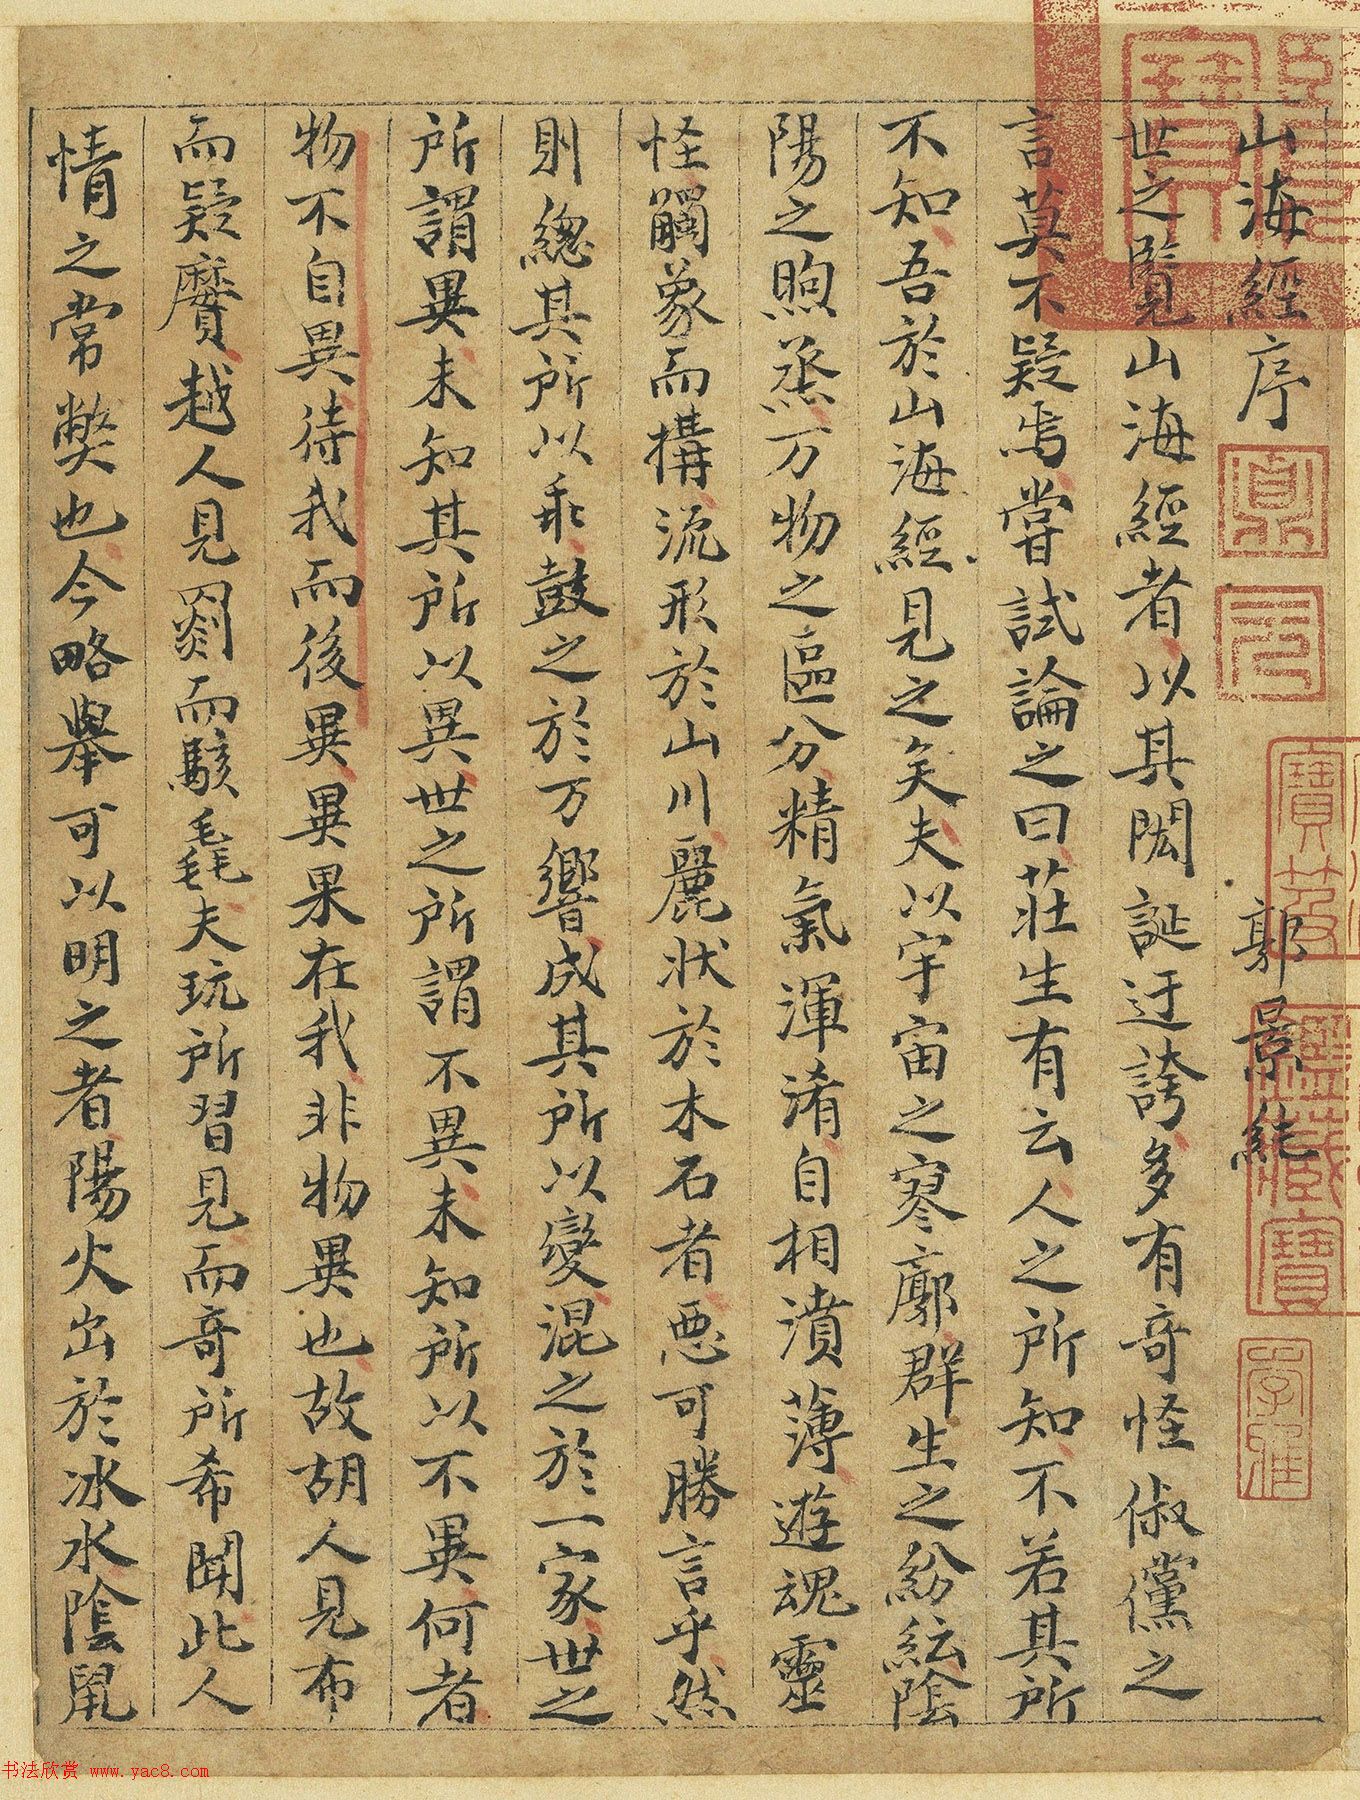 山海經序 郭景純
世之覧山海經者以其閎誕迂誇多有奇怪俶儻之
言莫不疑焉嘗試論之曰莊生有云人之所知不若其所
不知吾於山海經見之矣夫以宇宙之寥廓群生之紛紜陰
陽之煦蒸万物之區分精氣渾淆自相濆薄遊魂靈
怪觸象而構流形於山川麗状於木石者惡可勝言乎然
則總其所以乖鼓之於万響成其所以變混之於一家世之
所謂異未知其所以異世之所謂不異未知所以不異何者
物不自異待我而後異異果在我非物異也故胡人見布
而疑黂越人見罽而駭毳夫玩所習見而奇所希聞此人
情之常獘也今略舉可以明之者陽火出於冰水陰鼠
寶笈
鑑藏寶
书法欣赏 www.yac8.com